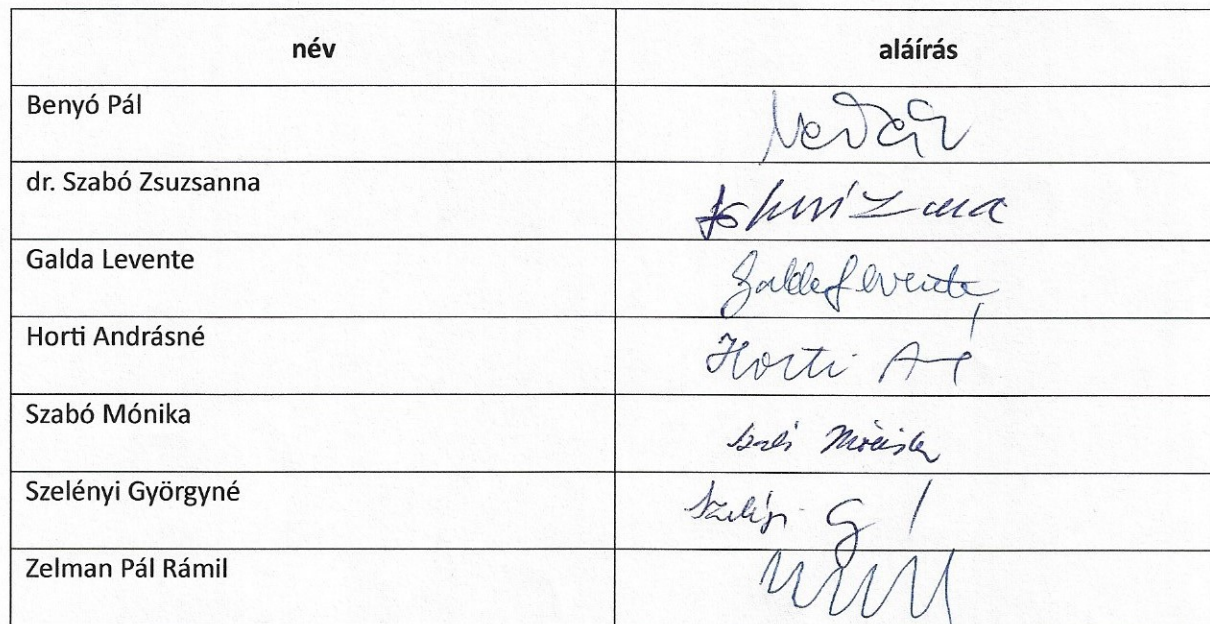 név aláírás
Benyó Pál
dr. Szabó Zsuzsanna
Galda Levente Galda Levente
Horti Andrásné Horti A-é
Szabó Mónika Szabó Mónika
Szelényi Györgyné
Zelman Pál Rámil